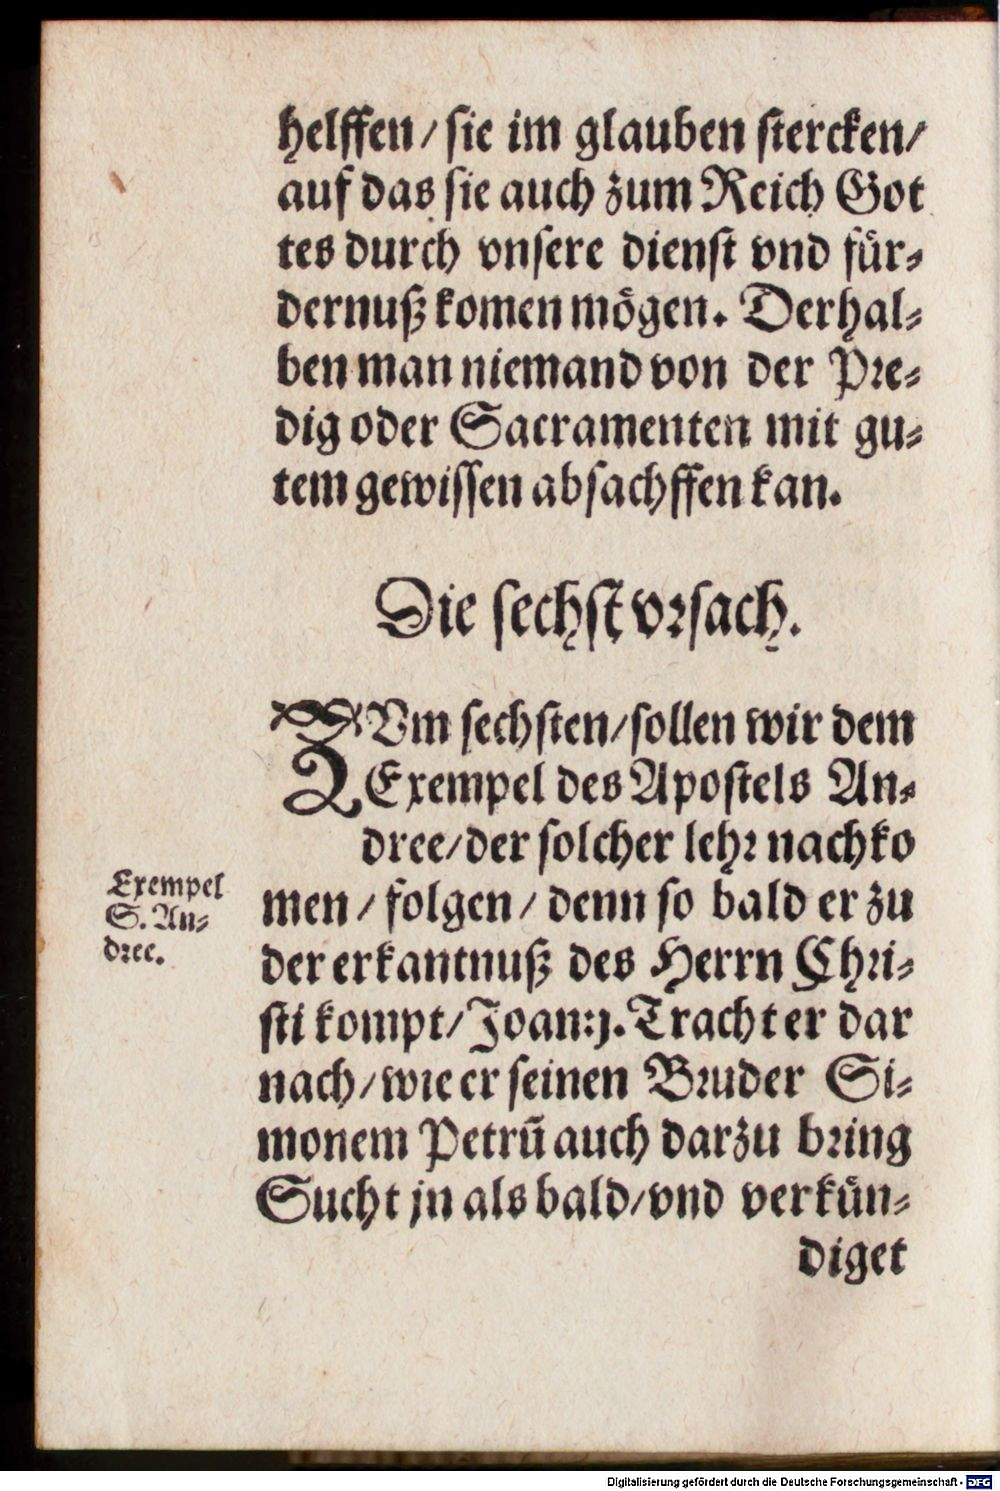 helffen / sie im glauben stercken /
auf das sie auch zum Reich Got
tes durch vnsere dienst vnd für⸗
dernuß komen mögen. Derhal⸗
ben man niemand von der Pre⸗
dig oder Sacramenten mit gu⸗
tem gewissen absachffen kan.
Die sechst vrsach.
ZVm sechsten / sollen wir dem
Exempel des Apostels An⸗
dree / der solcher lehr nachko
men / folgen / denn so bald er zu
der erkantnuß des Herrn Chri⸗
sti kompt / Joan:j. Tracht er dar
nach / wie er seinen Bruder Si⸗
monem Petrū auch darzu bring
Sucht jn als bald / vnd verkün⸗
diget
Exempel
S. An⸗
dree.
Digitalisierung gefördert durch die Deutsche Forschungsgemeinschaft - DFG